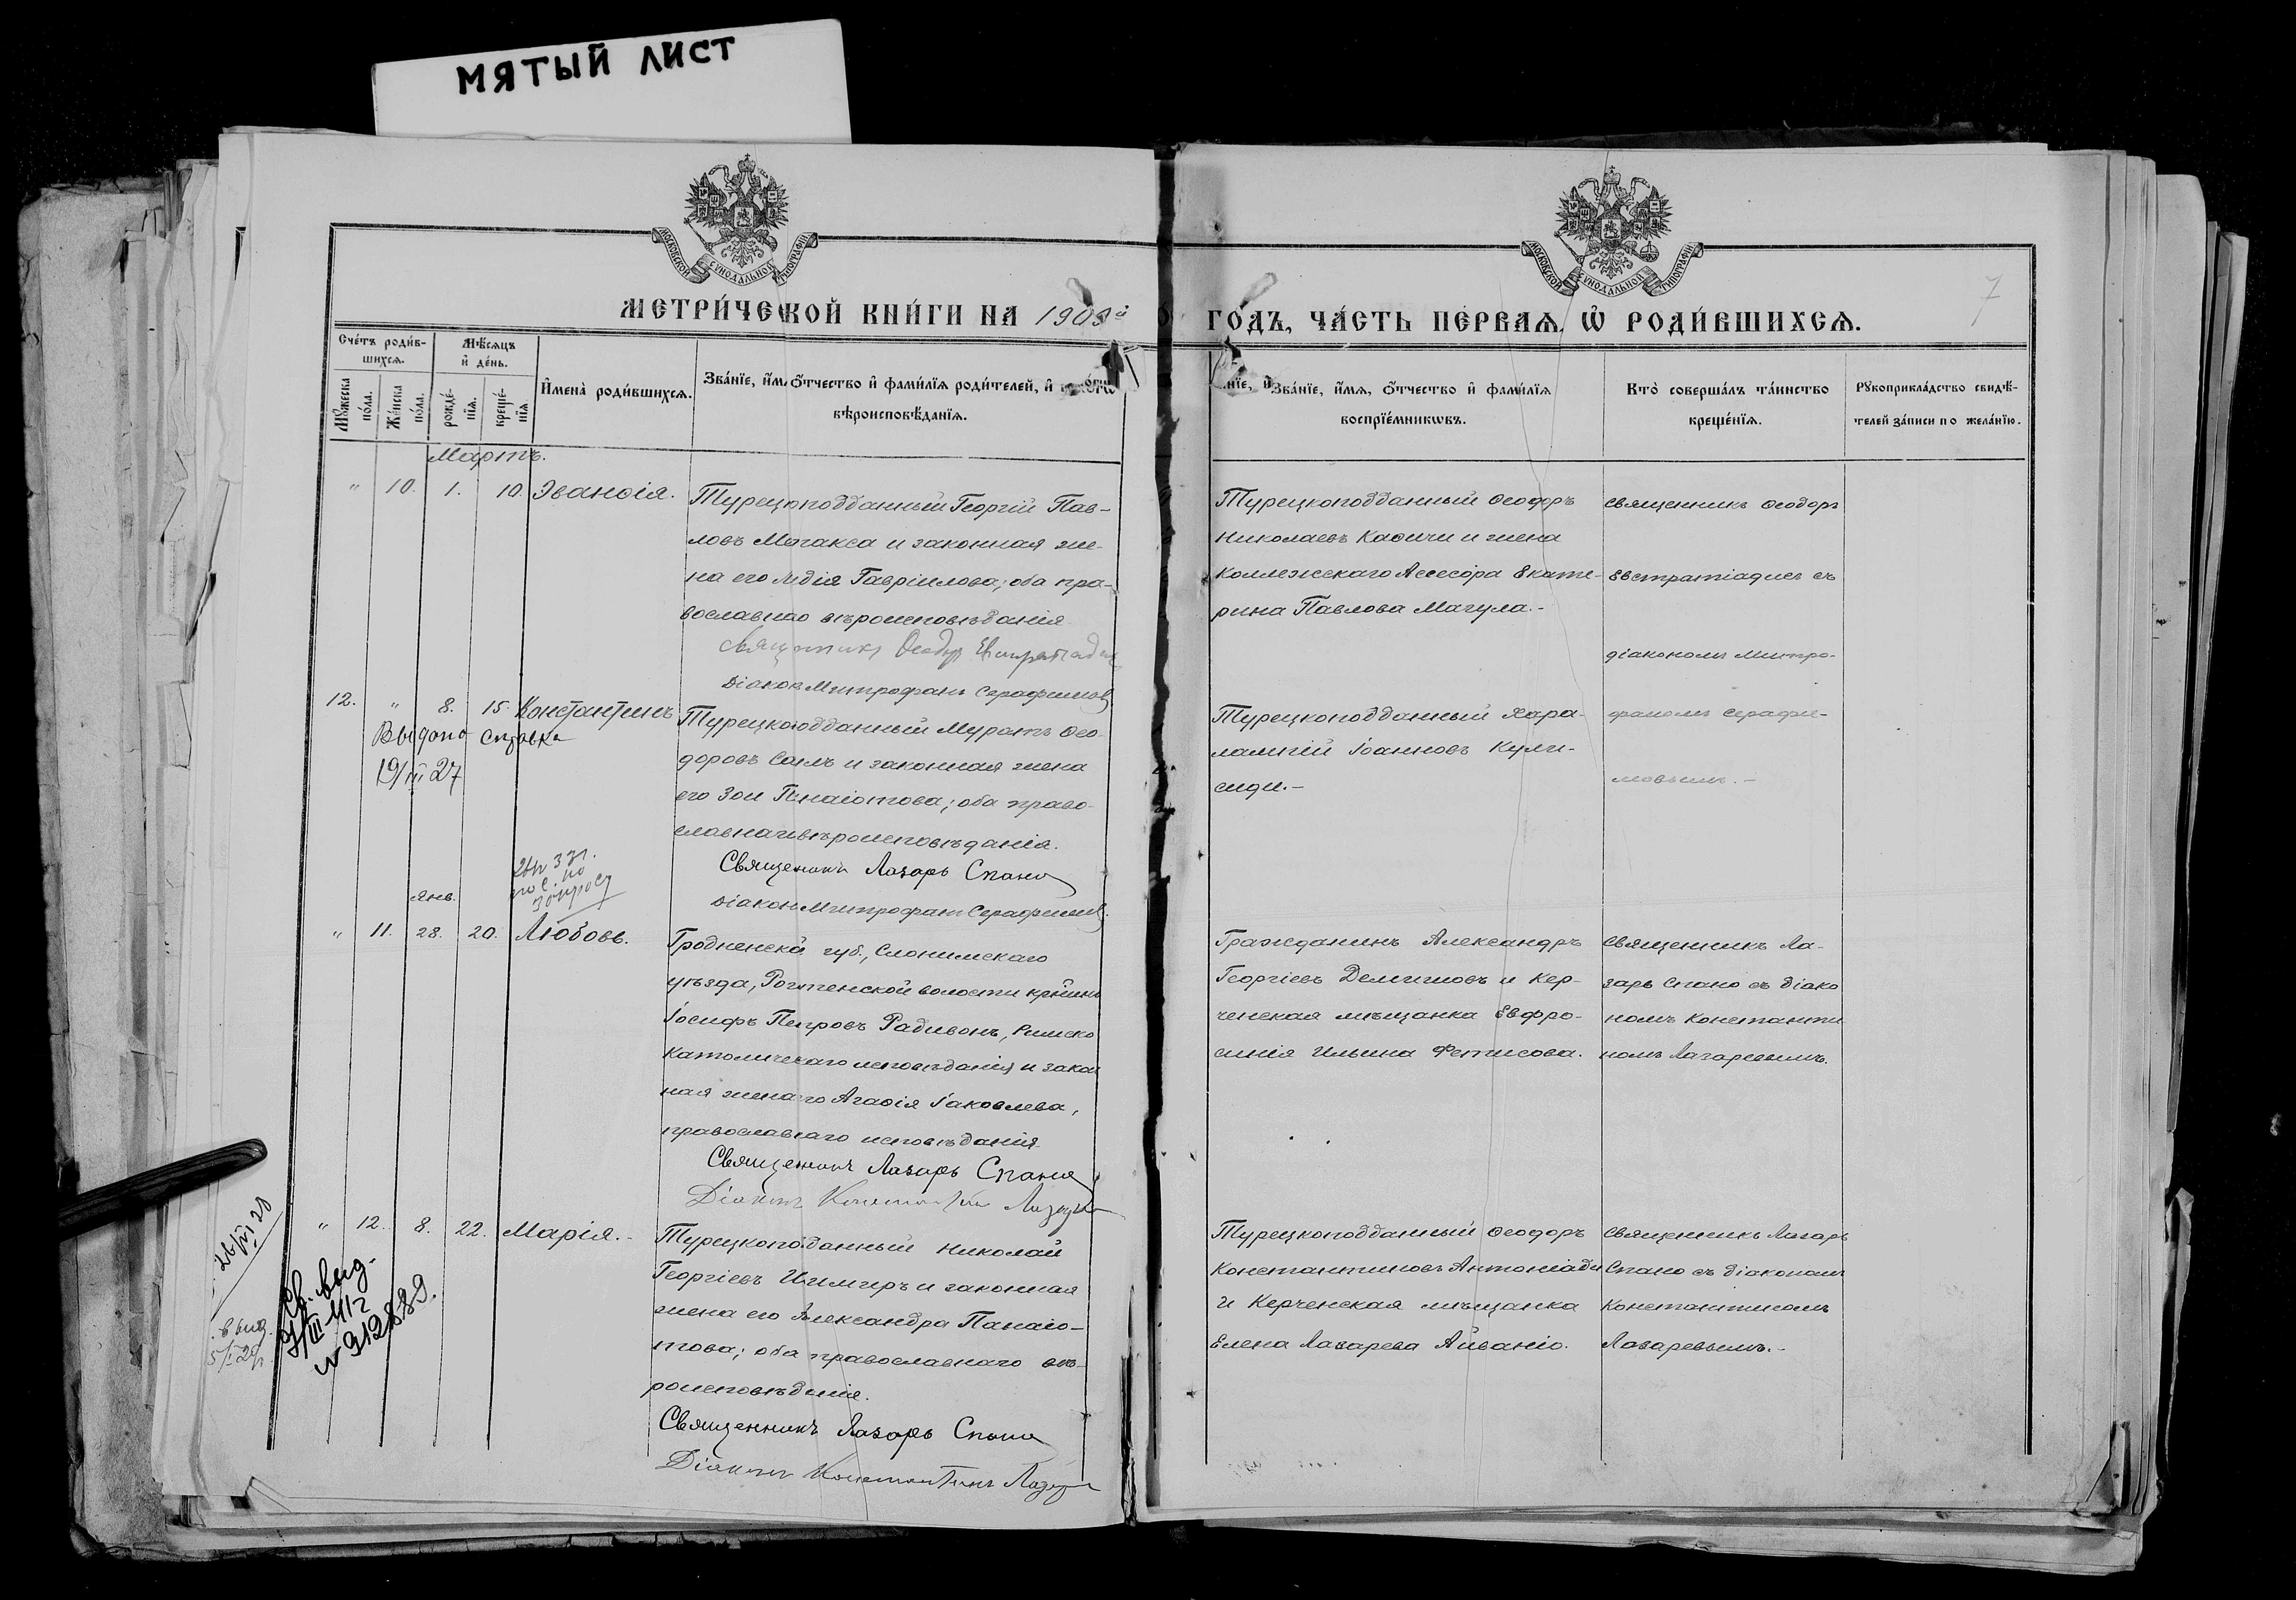 МЯТЫЙ ЛИСТ
МОСКОВСКОЙ СѴНОДАЛЬНОЙ ТИПОГРАФІИ
МОСКОВСКОЙ СѴНОДАЛЬНОЙ ТИПОГРАФІИ
7
МЕТРИ́ЧЕСКОЙ КНИ́ГИ НА 1909й
ГО́ДЪ, ЧА́СТЬ ПЕ́РВАѦ, Ѡ҆ РОДИ́ВШИХСѦ.
Сче́тъ роди́в-
шихсѧ.
Мѣ́сѧцъ
и҆ де́нь.
Мꙋ́жеска
по́ла.
Же́нска
по́ла.
рожде́-
нїѧ.
креще́-
нїѧ.
И҆мена̀ роди́вшихсѧ.
Зва́нїе, и҆́мѧ, ѻ҆́тчество и҆ фами́лїѧ роди́телей, и҆
вѣроисповѣ́данїѧ.
Зва́нїе, и҆́мѧ, ѻ҆́тчество и҆ фами́лїѧ
воспрїе́мникѡвъ.
Кто̀ соверша́лъ та́инство
креще́нїѧ.
Рꙋкоприкла́дство свидѣ́-
телей за́писи по жела́нїю.
Мартъ.
" 10. 1. 10. Эванѳія.
Турецкоподданный Георгій Пав-
ловъ Могакса и законная же-
на его Лидія Гавріилова; оба пра-
вославнаго вѣроисповѣданія
Священникъ Ѳеодоръ Евстратіадисъ
Діаконъ Митрофанъ Серафимовъ
Турецкоподданный Ѳеодоръ
Николаевъ Каѳичи и жена
Коллежскаго Ассесора Екате-
рина Павлова Магула.-
священникъ Ѳеодоръ
Евстратіадисъ съ
діакономъ Митро-
фаномъ Серафи-
мовымъ.-
12. " 8. 15. Константинъ
Выдана справка
19/III 27
Турецкоподданный Муратъ Ѳео-
доровъ Саиъ и законная жена
его Зои Панаіотова; оба право-
славнаго вѣроисповѣданія.
Священникъ Лазарь Спано
Діаконъ Митрофанъ Серафимовъ.
Турецкоподданный Хара-
лампій Іоанновъ Кули-
сиди.-
янв.
запросу
" 11. 28. 20. Любовь.
Гродненской губ., Слонимскаго
уѣзда, Роготенской волости кр-нинъ
Іосифъ Петровъ Радивонъ, Римско
Католическаго исповѣданія и закон
ная жена его Агаѳія Іаковлева,
православнаго исповѣданія.
Священникъ Лазарь Спано
Діаконъ Константинъ Лазаревъ
Гражданинъ Александръ
Георгіевъ Делигиовъ и Кер-
ченская мѣщанка Евфро-
синія Ильина Фетисова.
Священникъ Ла-
зарь Спано съ діако
номъ Константи
номъ Лазаревымъ.
" 12. 8. 22. Марія.-
26/VI 28
выд.
Св. выд.
№ 912889.
Турецкоподданный Николай
Георгіевъ Чимчиръ и законная
жена его Александра Панаіо-
това; оба православнаго вѣ-
роисповѣданія.
Священникъ Лазарь Спано
Діаконъ Константинъ Лазаревъ
Турецкоподданный Ѳеодоръ
Константиновъ Антоніади
и Керченская мѣщанка
Елена Лазарева Айваніо.
Священникъ Лазарь
Спано съ діакономъ
Константиномъ
Лазаревымъ.-